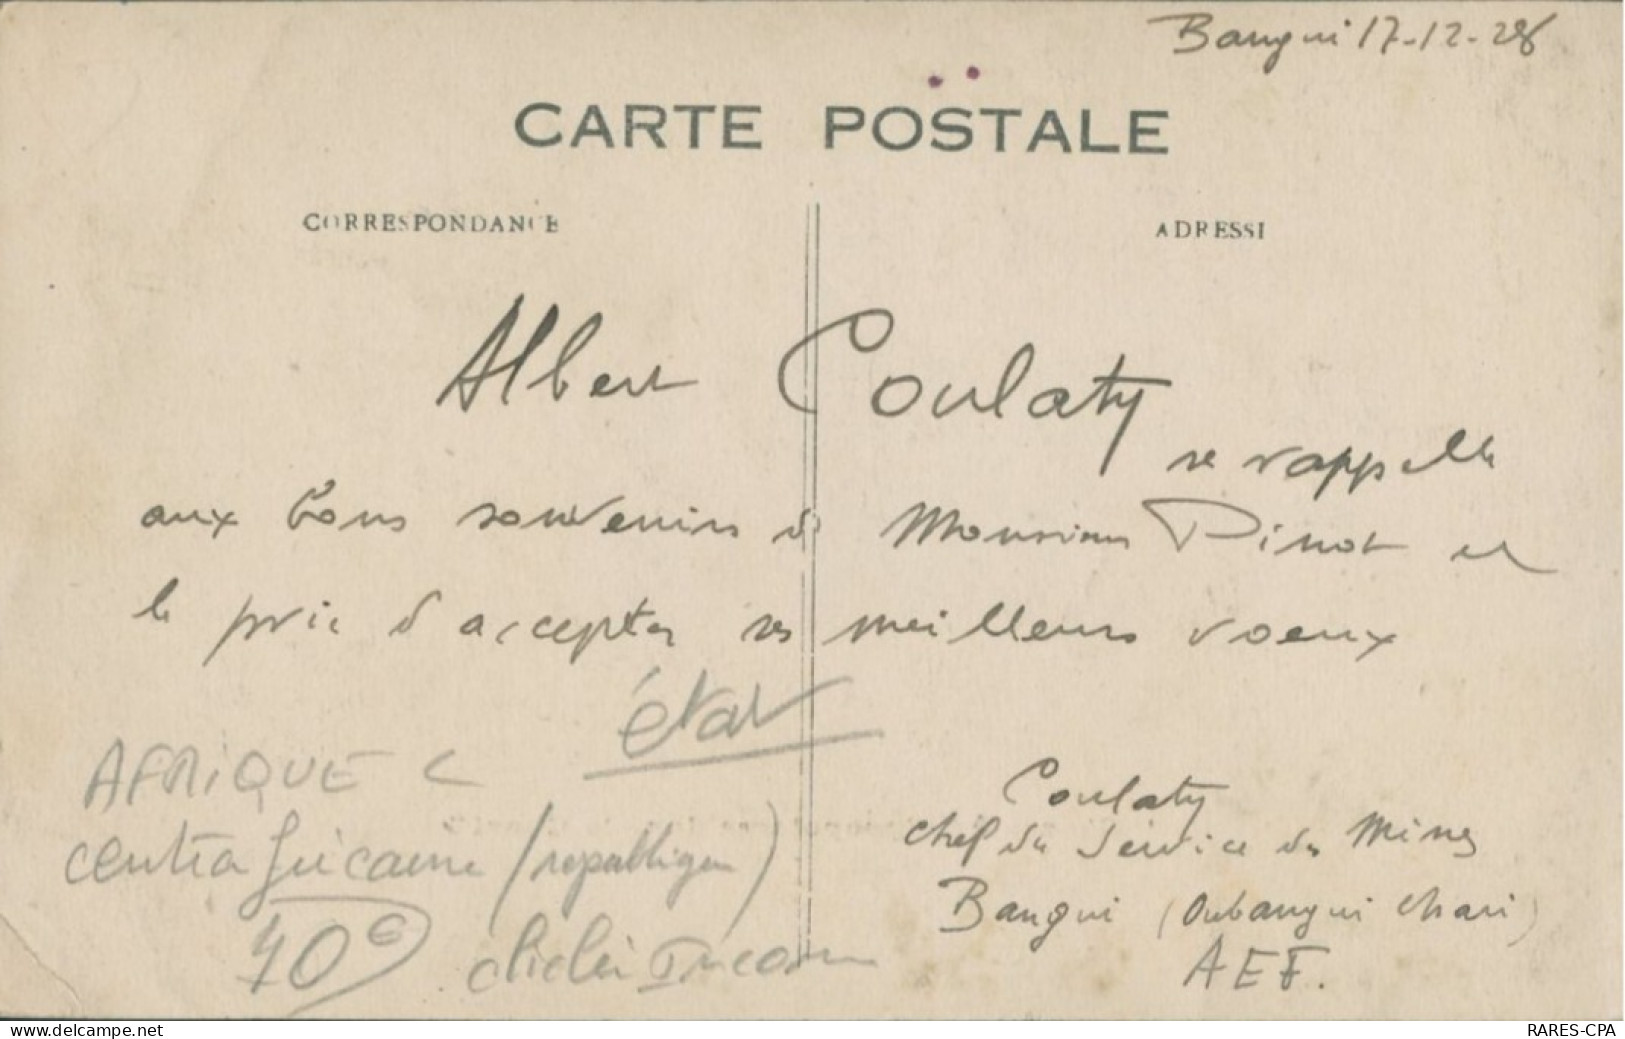 Bangui 17-12-28
CARTE POSTALE
CORRESPONDANCE
ADRESSE
Albert Coulaty
se rappelle
aux bons souvenirs de Monsieur Pinot et
le prie d'accepter ses meilleurs voeux
état
AFRIQUE C
centrafricaine (république)
40€ cliché
Coulaty
chef du service des Mines
Bangui (Oubangui Chari)
AEF.
www.delcampe.net
RARES-CPA